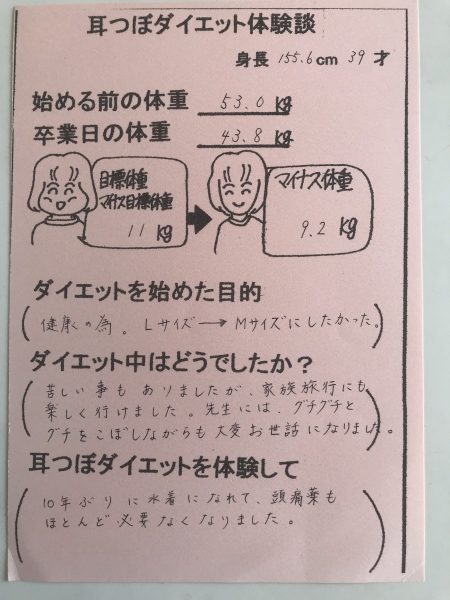 耳つぼダイエット体験談
身長 155.6cm 39才
始める前の体重 53.0 kg
卒業日の体重 43.8 kg
目標体重
マイナス目標体重
11 kg
マイナス体重
9.2 kg
ダイエットを始めた目的
健康の為。Lサイズ→Mサイズにしたかった。
ダイエット中はどうでしたか？
苦しい事もありましたが、家族旅行にも
楽しく行けました。先生には、グチグチと
グチをこぼしながらも大変お世話になりました。
耳つぼダイエットを体験して
10年ぶりに水着になれて、頭痛薬も
ほとんど必要なくなりました。